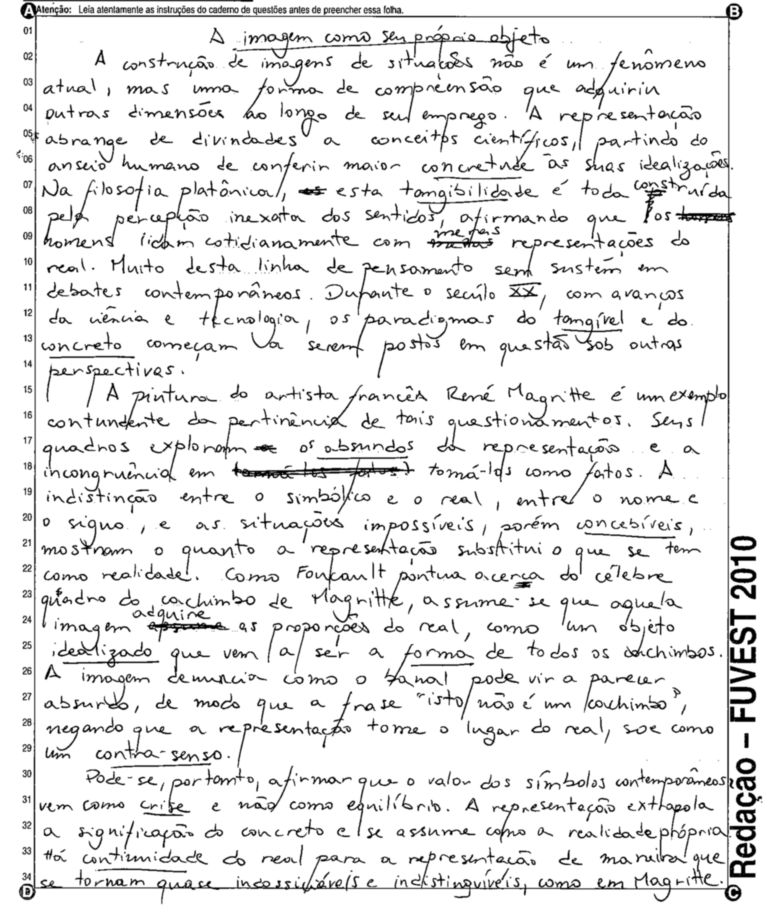 A Atenção: Leia atentamente as instruções do caderno de questões antes de preencher essa folha. B
01 A imagem como seu próprio objeto
02 A construção de imagens de situações não é um fenômeno
03 atual, mas uma forma de compreensão que adquiriu
04 outras dimensões ao longo de seu emprego. A representação
05 abrange de divindades a conceitos científicos, partindo do
06 anseio humano de conferir maior concretude às suas idealizações.
07 Na filosofia platônica, esta tangibilidade é toda construída
08 pela percepção inexata dos sentidos, afirmando que os
09 homens lidam cotidianamente com meras representações do
10 real. Muito desta linha de pensamento sem sustém em
11 debates contemporâneos. Durante o século XX, com avanços
12 da ciência e tecnologia, os paradigmas do tangível e do
13 concreto começam a serem postos em questão sob outras
14 perspectivas.
15 A pintura do artista francês René Magritte é um exemplo
16 contundente da pertinência de tais questionamentos. Seus
17 quadros exploram os absurdos da representação e a
18 incongruência em tomá-los como fatos. A
19 indistinção entre o simbólico e o real, entre o nome e
20 o signo, e as situações impossíveis, porém concebíveis,
21 mostram o quanto a representação substitui o que se tem
22 como realidade. Como Foucault pontua acerca do célebre
23 quadro do cachimbo de Magritte, assume-se que aquela
24 imagem adquire as proporções do real, como um objeto
25 idealizado que vem a ser a forma de todos os cachimbos.
26 A imagem denuncia como o banal pode vir a parecer
27 absurdo, de modo que a frase "isto não é um cachimbo",
28 negando que a representação tome o lugar do real, soe como
29 um contra-senso.
30 Pode-se, portanto, afirmar que o valor dos símbolos contemporâneos
31 vem como crise e não como equilíbrio. A representação extrapola
32 a significação do concreto e se assume como a realidade própria.
33 Há continuidade do real para a representação de maneira que
34 se tornam quase indossiciáveis e indistinguíveis, como em Magritte.
D C
Redação – FUVEST 2010